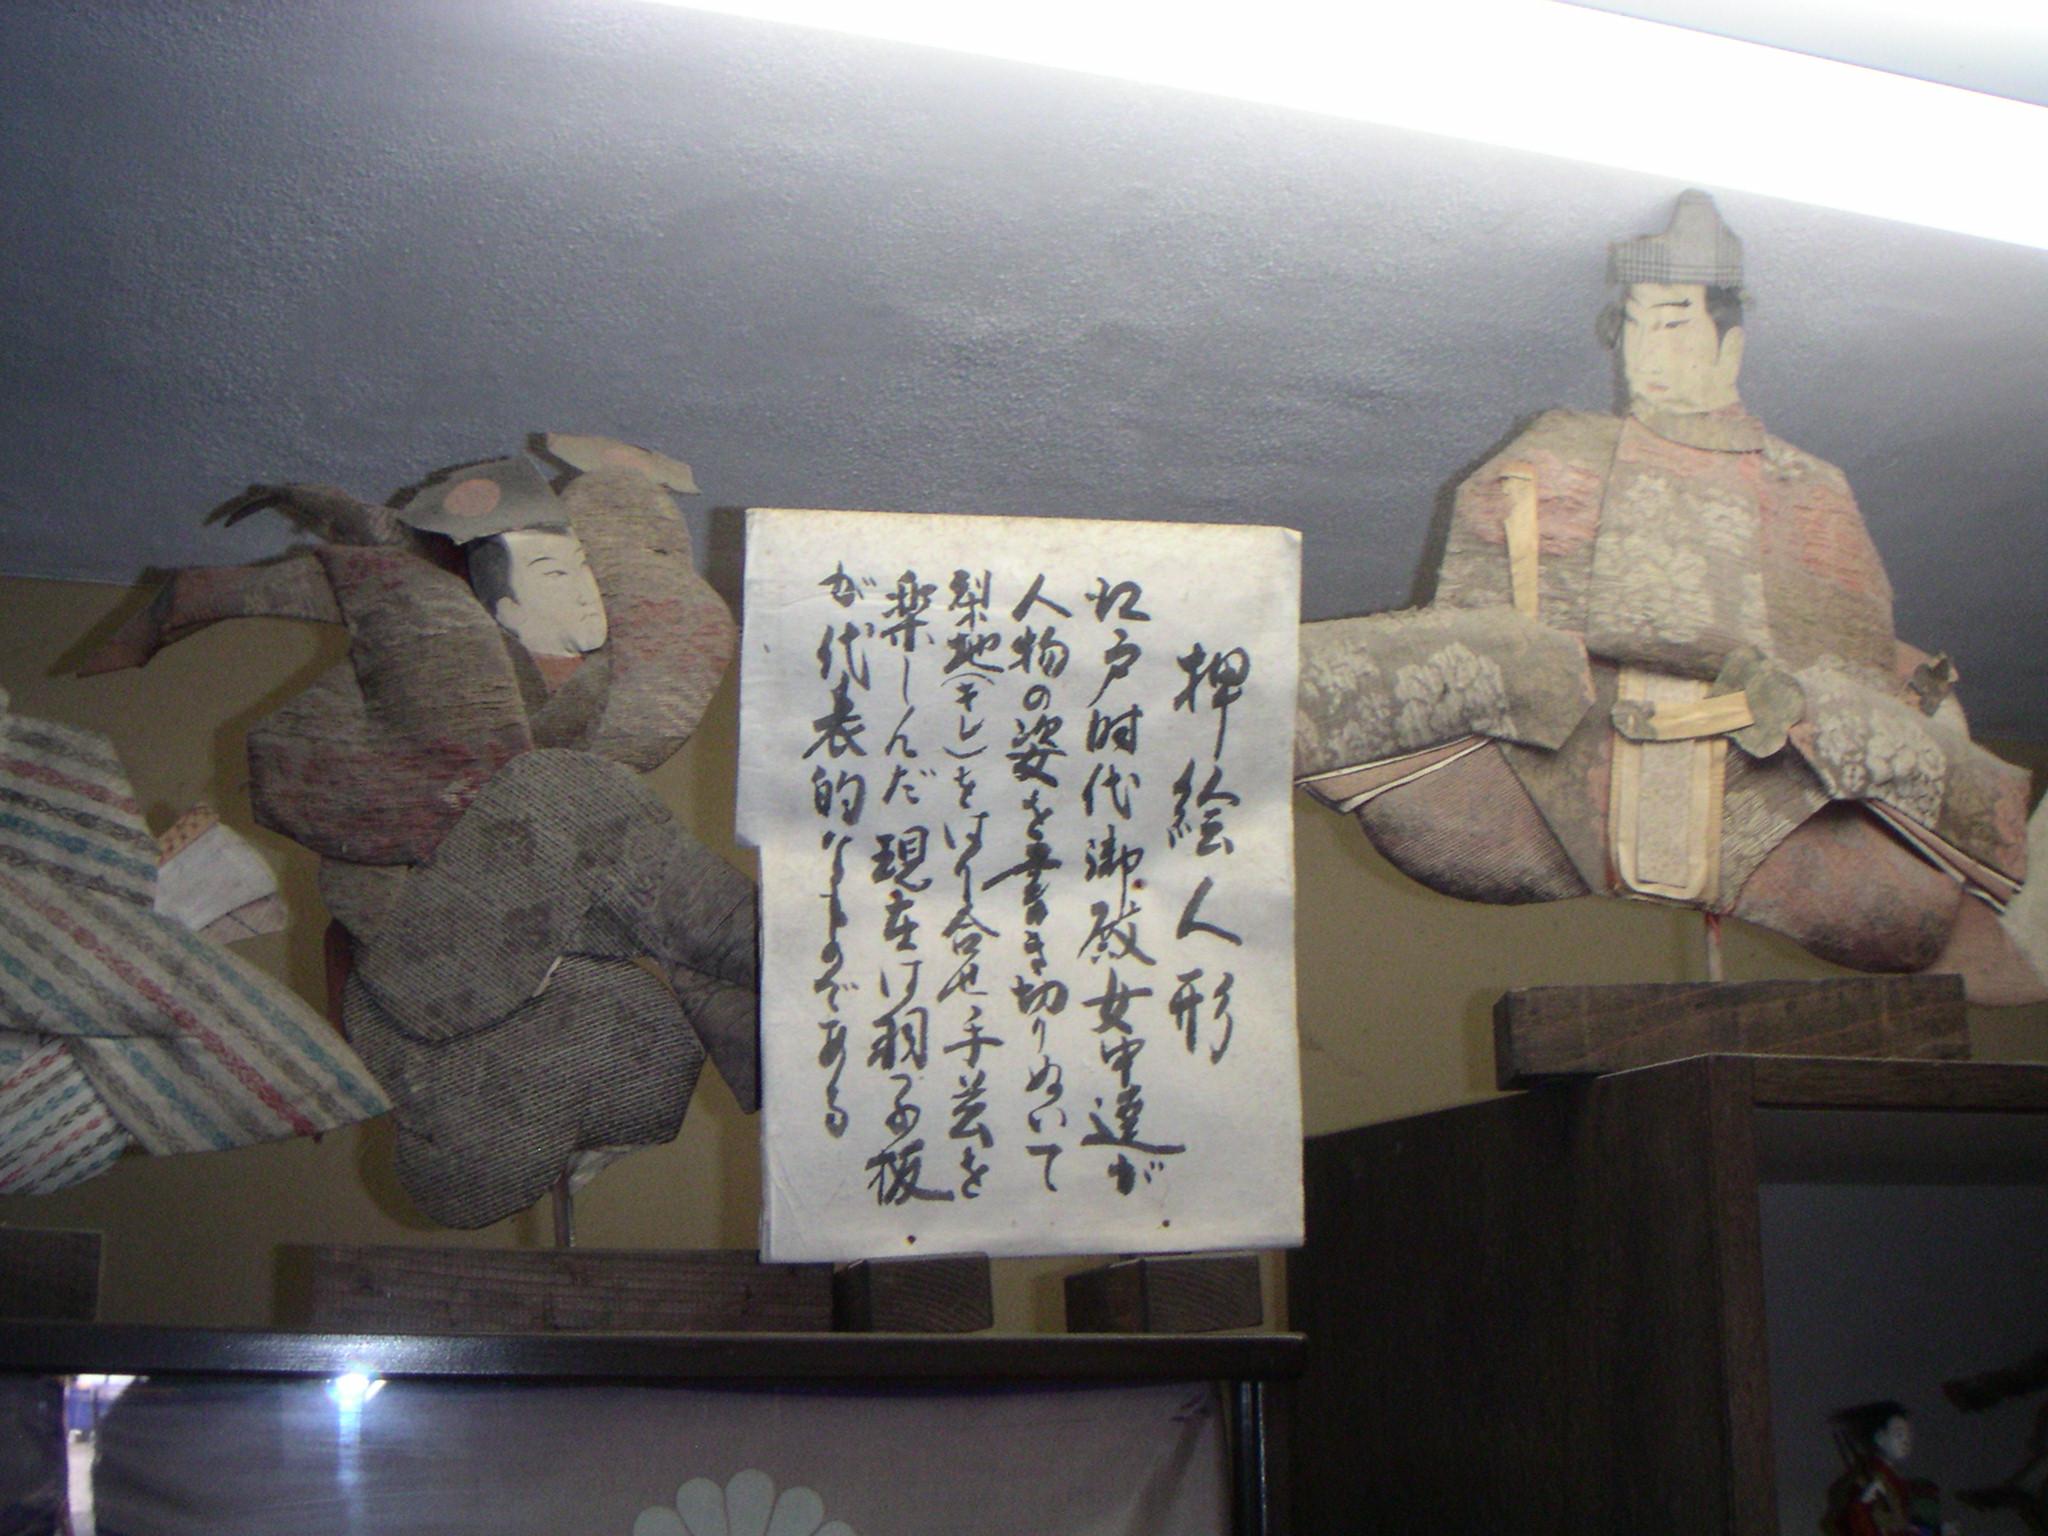 押絵人形
江戸時代御殿女中達が
人物の姿を書き切りぬいて
梨地(キレ)をはり合せ手芸を
楽しんだ現在は羽子板
が代表的なものである